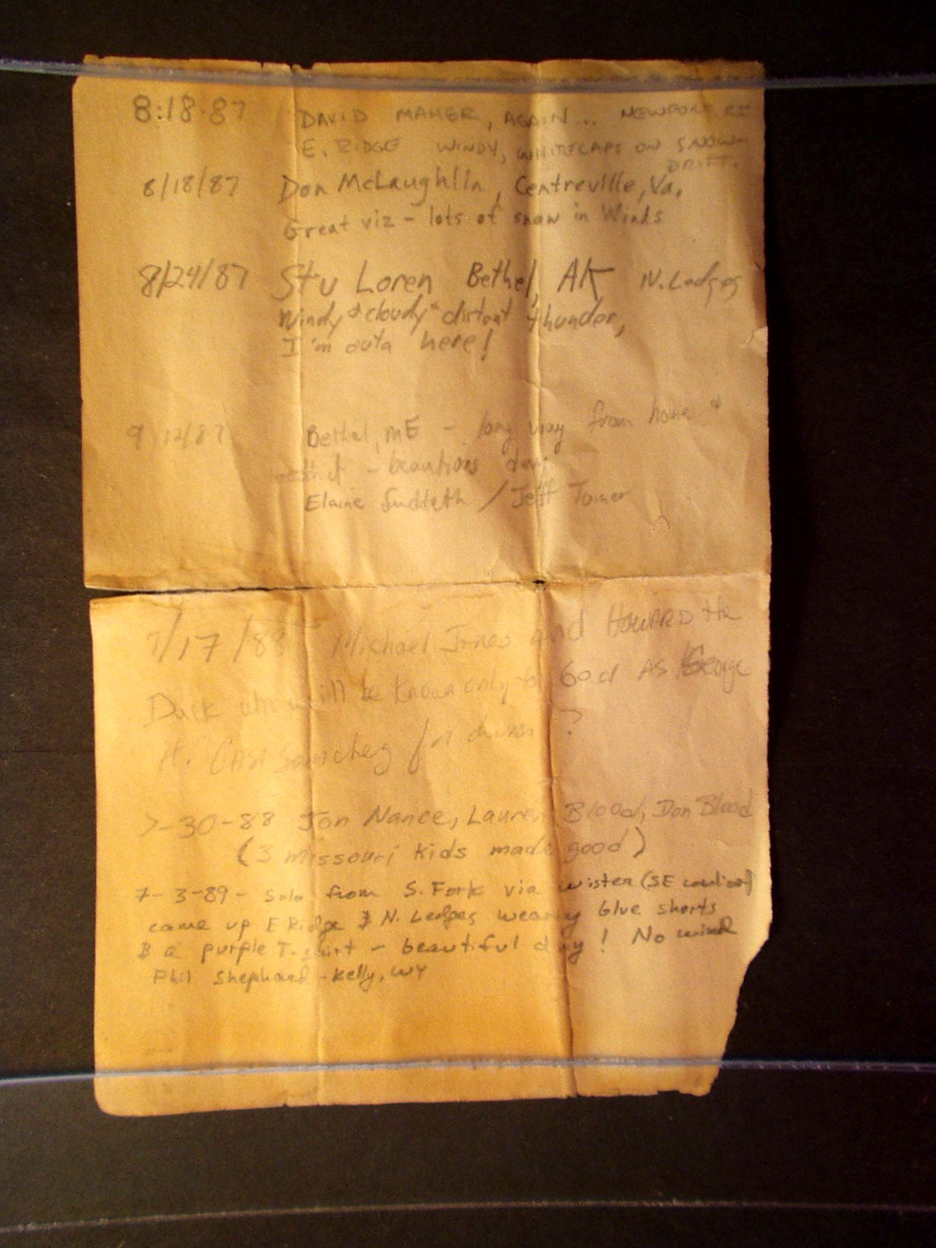 8·18·87 DAVID MAHER, AGAIN... NEWPORT RI
E. RIDGE WINDY, WHITECAPS ON SNOW-
DRIFT.
8/18/87 Don McLaughlin, Centreville, Va.
Great viz - lots of snow in Winds
8/24/87 Stu Loren Bethel, AK N. Ledges
Windy & cloudy & distant thunder,
I'm outa here!
9/12/87 Bethel, ME - long way from home &
- beautious day
Elaine Suddeth / Jeff Tomer
7/17/88 Michael Jones and HOWARD the
Duck who will be known only to God AS George
Sanchez for dinner ?
7-30-88 Jon Nance, Lauren Blood, Don Blood
(3 Missouri kids made good)
7-3-89 - Solo from S. Fork via wister (SE
came up E Ridge & N. Ledges wearing blue shorts
& a purple T-shirt - beautiful day! No wind
Phil Shephard - Kelly, WY